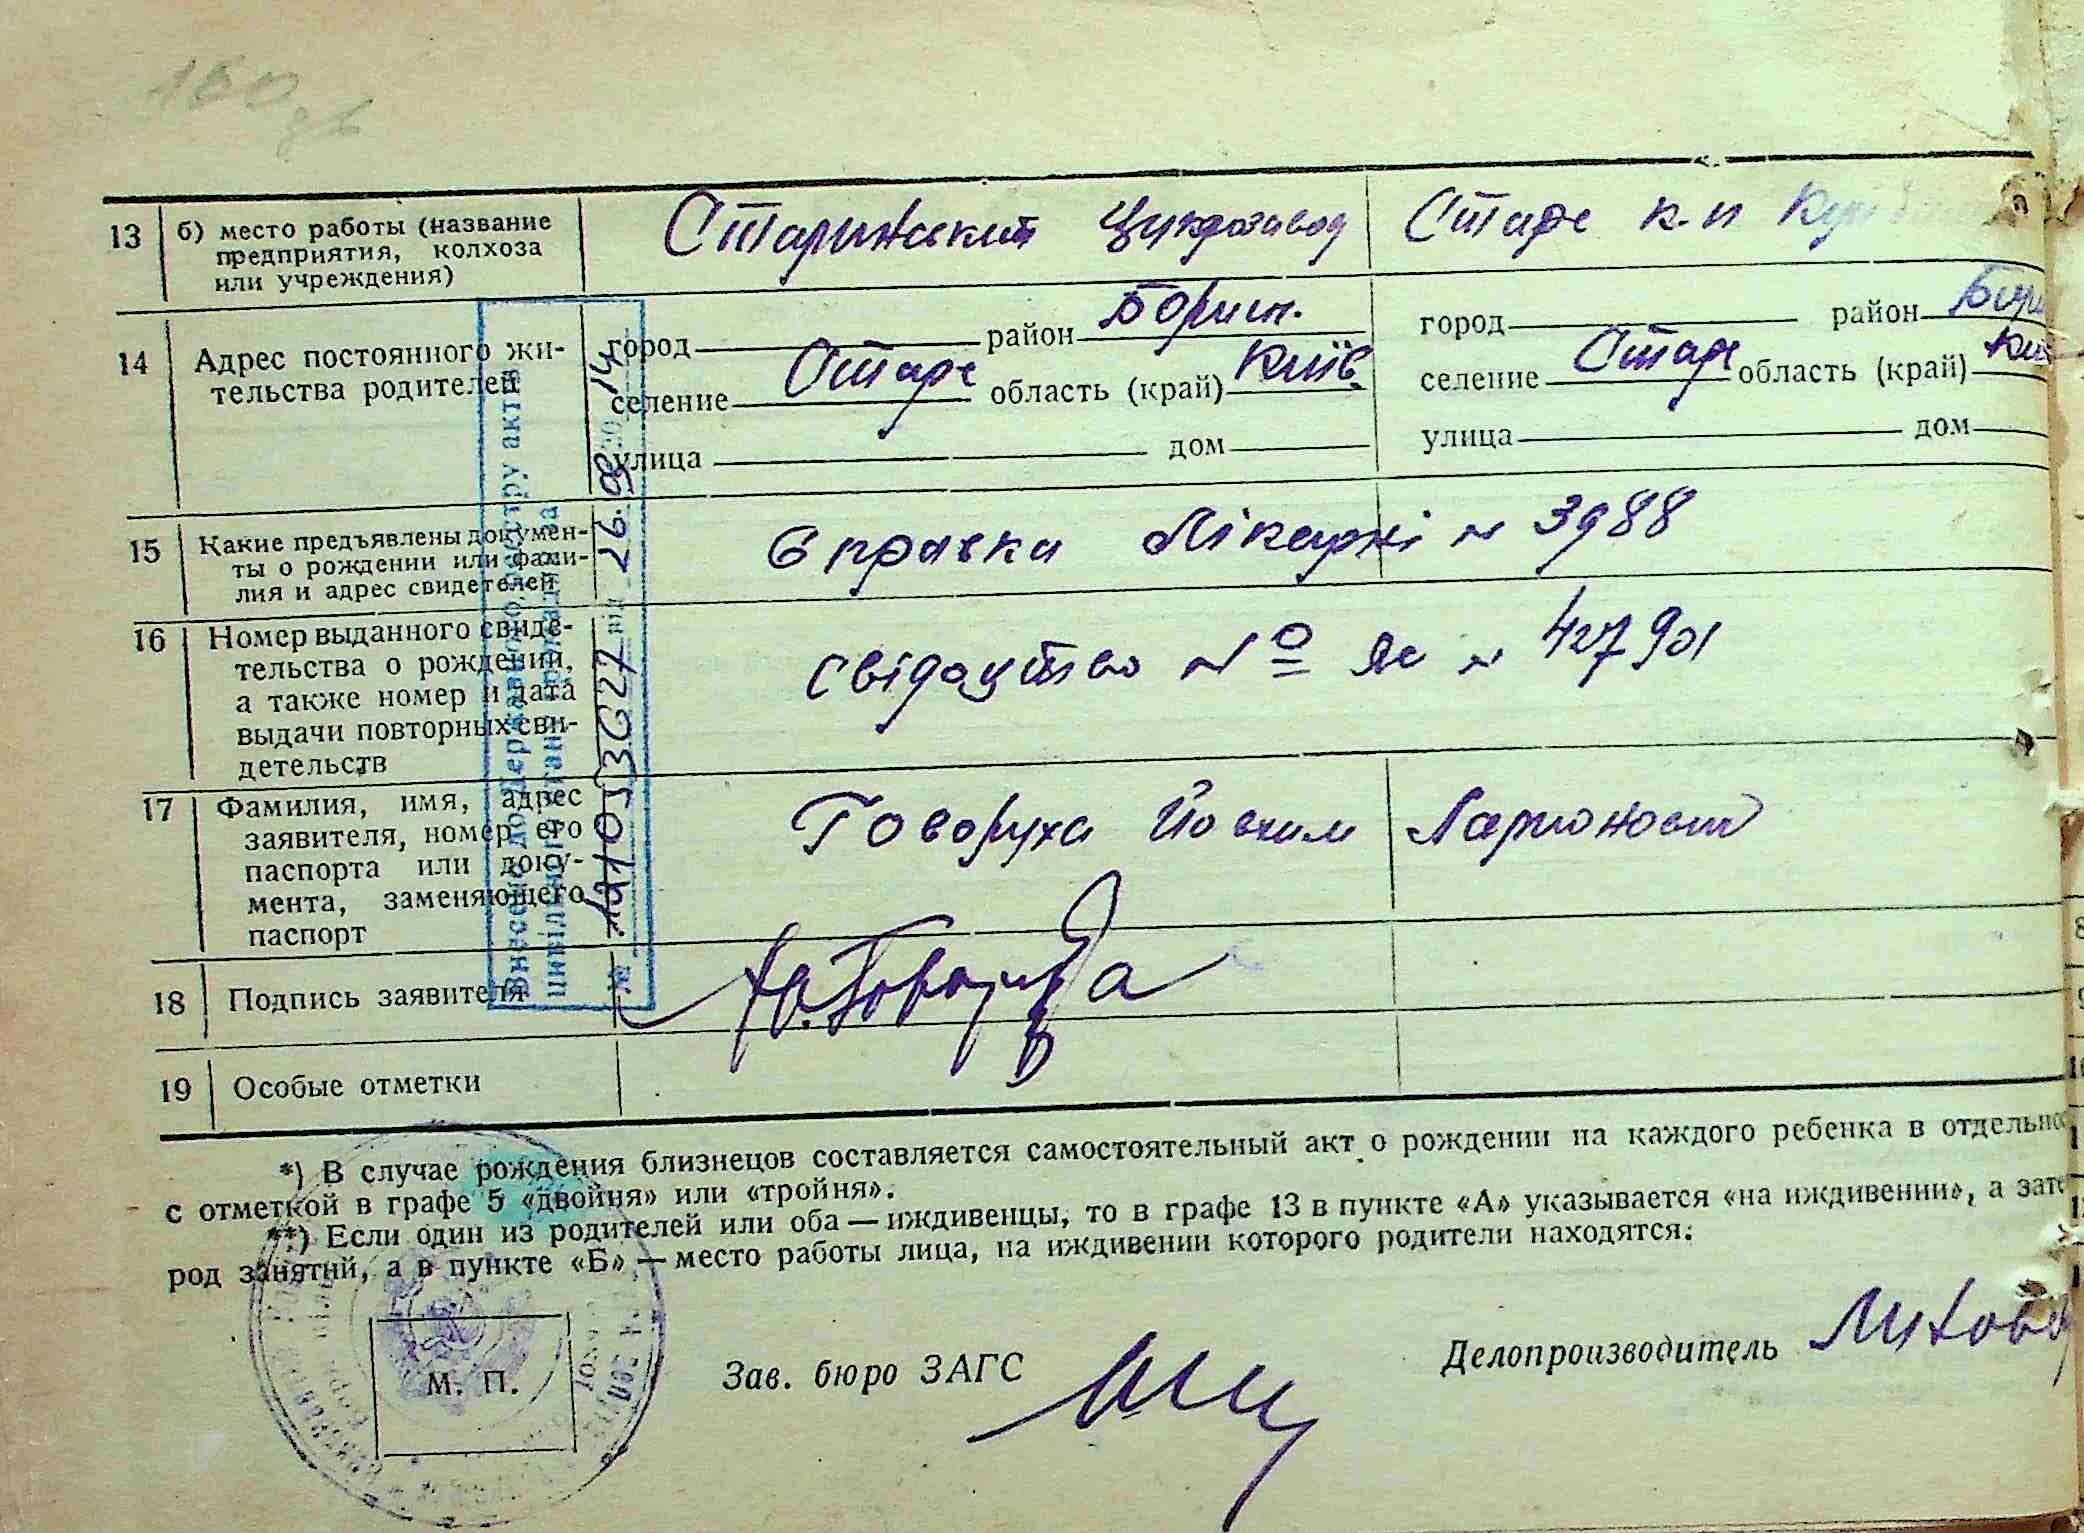 13 б) место работы (название
предприятия, колхоза
или учреждения)
Старинский Цукрозавод
Старе к.п
14 Адрес постоянного жи-
тельства родителей
город район Борисп.
селение Старе область (край) Київ.
улица дом
город район Бори
селение Старе область (край) Киї
улица дом
15 Какие предъявлены докумен-
ты о рождении или фами-
лия и адрес свидетелей
Справка Лікарні № 3988
16 Номер выданного свиде-
тельства о рождении,
а также номер и дата
выдачи повторных сви-
детельств
свідоцтво №
17 Фамилия, имя, адрес
заявителя, номер его
паспорта или доку-
мента, заменяющего
паспорт
Говоруха Йоахим Ларионович
18 Подпись заявителя
19 Особые отметки
Внесено до Державного реєстру актів
цивільного стану громадян за
№ від 26.09 2014
*) В случае рождения близнецов составляется самостоятельный акт о рождении на каждого ребенка в отдельнос
с отметкой в графе 5 «двойня» или «тройня».
**) Если один из родителей или оба — иждивенцы, то в графе 13 в пункте «А» указывается «на иждивении», а зате
род занятий, а в пункте «Б» — место работы лица, на иждивении которого родители находятся.
М. П.
Зав. бюро ЗАГС
Делопроизводитель